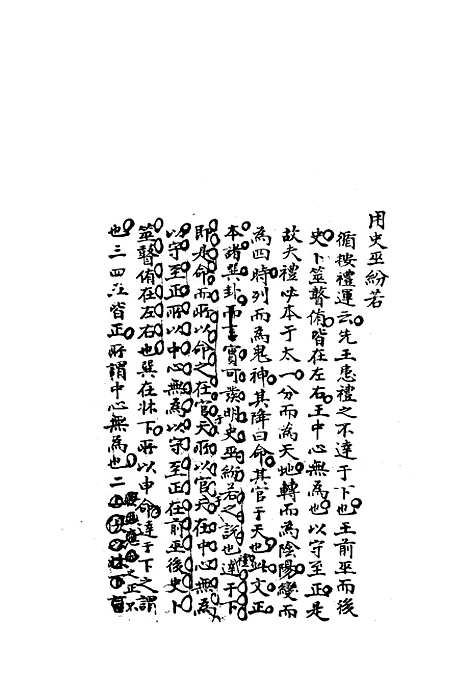 用史巫紛若
循按禮運云先王患禮之不達于下也王前巫而後
史卜筮瞽侑皆在左右王中心無為也以守至正是
故夫禮必本于太一分而為天地轉而為陰陽變而
為四時列而為鬼神其降曰命其官于天也此文正
本諸巽卦而言實可發明史巫紛若之說也達于下
即是命而所以命之在官天所以官天在中心無為
以守至正所以中心無為以守至正在前巫後史卜
筮瞽侑在左右也巽在牀下所以申命達于下之謂
也三四五皆正所謂中心無為也二